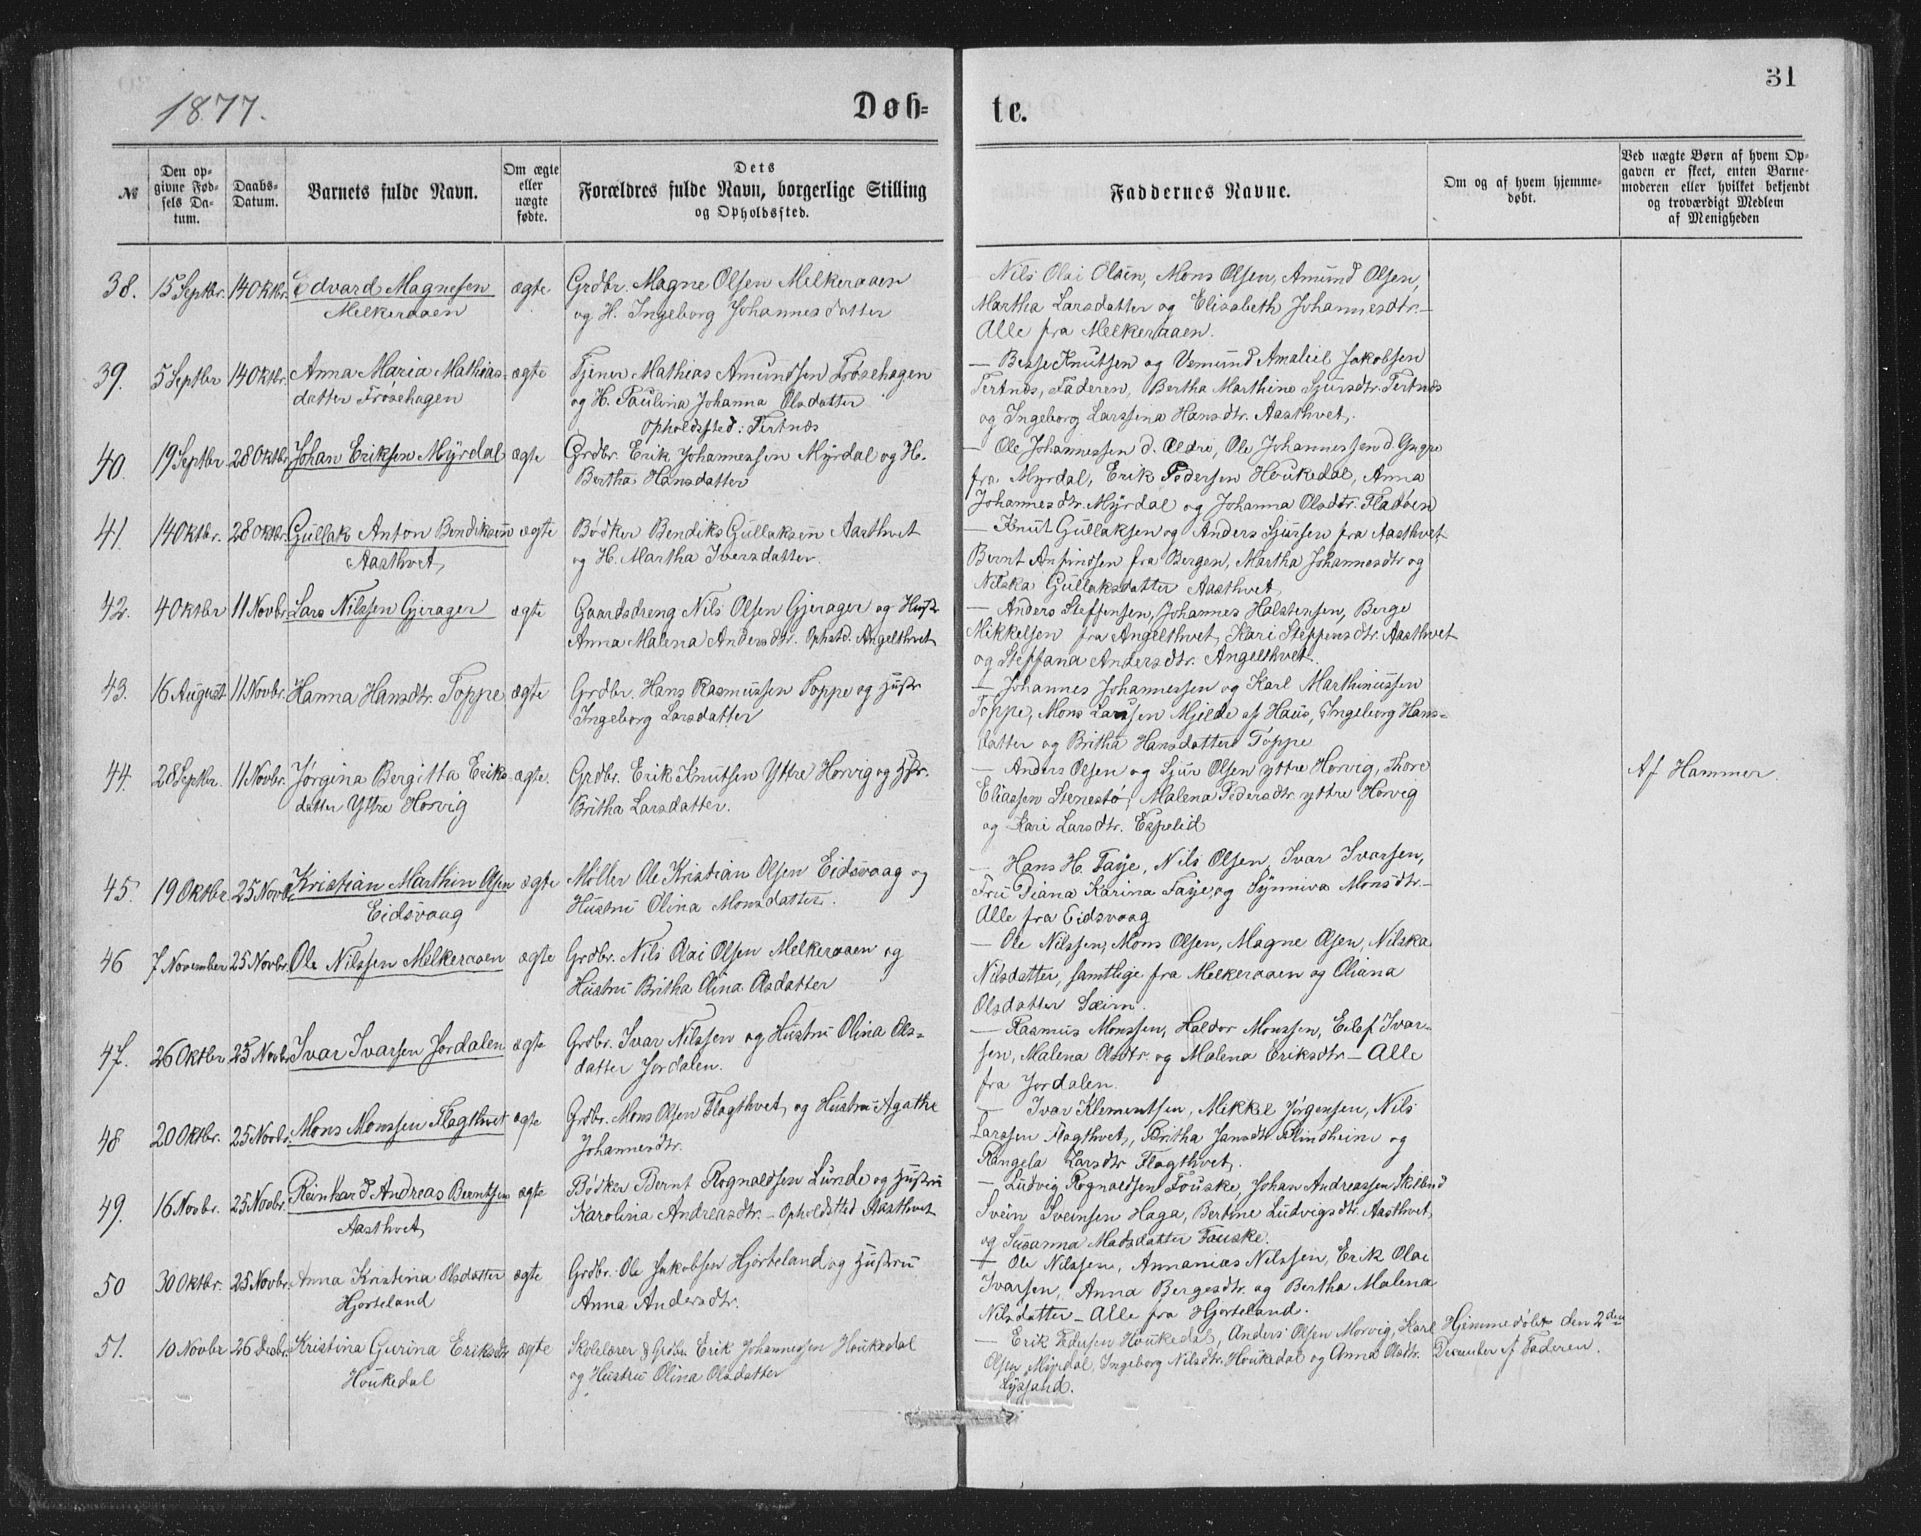 31
1877.
Døb=
te.
№
Den op=
givne Fød=
sels Da=
tum.
Daabs=
Datum.
Barnets fulde Navn.
Om ægte
eller
uægte
fødte.
Dets
Forældres fulde Navn, borgerlige Stilling
og Opholdssted.
Faddernes Navne.
Om og af hvem hjemme=
døbt.
Ved uægte Børn af hvem Op=
gaven er skeet, enten Barne=
moderen eller hvilket bekjendt
og troværdigt Medlem
af Menigheden
38. 15 Septbr. 14 Oktbr. Edvard Magnesen ægte
Melkeraaen
Grdbr. Magne Olsen Melkeraaen
og H. Ingeborg Johannesdatter
Nils Olai Olsen, Mons Olsen, Amund Olsen,
Martha Larsdatter og Elisabeth Johannesdtr.
Alle fra Melkeraaen.
39. 5 Septbr 14 Oktbr. Anna Maria Mathias- ægte
datter Frøsehagen
Tjener Mathias Amundsen Frøsehagen
og H. Paulina Johanna Olsdatter
Opholdssted: Tertnæs
— Besse Knutsen og Vemund Amaliel Jakobsen
Tertnes, Faderen, Bertha Marthine Sjursdtr. Tertnæs
og Ingeborg Larssena Hansdtr. Aasthvet.
40. 19 Septbr 28 Oktbr. Johan Eriksen Myrdal ægte
Grdbr. Erik Johannessen Myrdal og H.
Bertha Hansdatter
— Ole Johannessen d. Ældre, Ole Johannessen d. Yngre
fra Myrdal, Erik Pedersen Houkedal, Anna
Johannesdtr. Myrdal og Johanna Olsdtr. Fladøen
41. 14 Oktbr. 28 Oktbr. Gullak Anton Bendiksen ægte
Aasthvet,
Bødker Bendiks Gullaksen Aasthvet
og H. Martha Iversdatter.
— Knut Gullaksen og Anders Sjursen fra Aasthvet
Bernt Anfindsen fra Bergen, Martha Johannesdtr og
Nilska Gullaksdatter Aasthvet,
42. 4 Oktbr 11 Novbr. Lars Nilssen Gjerager ægte
Gaardsdreng Nils Olsen Gjerager og Hustr
Anna Malena Andersdtr. Ophstd. Angelthvet
— Anders Steffensen, Johannes Halstensen, Berge
Mikkelsen fra Angelthvet, Kari Steffensdtr. Aasthvet
og Steffana Andersdtr. Angelthvet.
43. 16 August 11 Novbr. Hanna Hansdtr. Toppe ægte
Grdbr. Hans Rasmussen Toppe og Hustr
Ingeborg Larsdatter
— Johannes Johannessen og Karl Marthinussen
Toppe, Mons Larssen Mjelde af Haus, Ingeborg Hans-
datter og Britha Hansdatter Toppe
44. 28 Septbr. 11 Novbr. Jørgina Bergitta Eriks- ægte.
datter Yttre Horvig
Grdbr. Erik Knutsen Yttre Horvig og Hstr.
Britha Larsdatter.
— Anders Olsen og Sjur Olsen yttre Horvig, Thore
Eliassen Stenestø, Malena Pedersdtr. yttre Horvig
og Kari Larsdtr. Espelid
Af Hammer.
45. 19 Oktbr. 25 Novbr. Kristian Marthin Olsen ægte
Eidsvaag
Møller Ole Kristian Olsen Eidsvaag og
Hustru Olina Monsdatter.
— Hans H. Faye, Nils Olsen, Ivar Ivarsen,
Fru Diana Karina Faye, og Synniva Monsdtr.
Alle fra Eidsvaag
46 7 November 25 Novbr. Ole Nilssen Melkeraaen ægte
Grdbr. Nils Olai Olsen Melkeraaen og
Hustru Britha Olina Olsdatter
— Ole Nilssen, Mons Olsen, Magne Olsen, Nilska
Nilsdatter, samtlige fra Melkeraaen og Oliana
Olsdatter Sæim.
47. 26 Oktbr 25 Novbr. Ivar Ivarsen Jordalen ægte
Grdbr. Ivar Nilssen og Hustru Olina Ols-
datter Jordalen.
— Rasmus Monssen, Haldor Monssen, Eilef Ivar-
sen, Malena Olsdtr. og Malena Eriksdtr. — Alle
fra Jordalen.
48 20 Oktbr. 25 Novbr. Mons Monssen Flagthvet ægte
Grdbr. Mons Olsen Flagthvet, og Hustru Agathe
Johannesdtr.
— Ivar Klementsen, Mikkel Jørgensen, Nils
Larssen Flagthvet, Britha Jansdtr. Blindheim og
Rangela Larsdtr Flagthvet.
49. 16 Novbr. 25 Novbr. Reinhard Andreas Berntsen ægte
Aasthvet,
Bødker Bernt Rognaldsen Lunde og Hustru
Karolina Andreasdtr. — Opholdssted Aasthvet
— Ludvig Rognaldsen Fouske, Johan Andreassen
Svein Sveinsen Haga, Bertine Ludvigsdtr. Aasthvet,
og Susanna Madsdatter Fauske.
50 30 Oktbr. 25 Novbr. Anna Kristina Olsdatter ægte
Hjorteland
Grdbr. Ole Jakobsen Hjorteland og Hustru
Anna Andersdtr.
— Ole Nilssen, Annanias Nilssen, Erik Olai
Ivarsen, Anna Bergesdtr. og Bertha Malena
Nilsdatter — Alle fra Hjorteland.
51. 10 Novbr 26 Decbr. Kristina Gurina Eriksdtr ægte
Houkedal
Skolelærer & Grdbr. Erik Johannessen Houkedal
og Hustru Olina Olsdatter
— Erik Pedersen Houkedal, Anders Olsen Morvig, Karl
Olsen Myrdal, Ingeborg Nilsdtr. Houkedal og Anna Olsdtr.
Hjemmedøbt den 2den
December af Faderen.